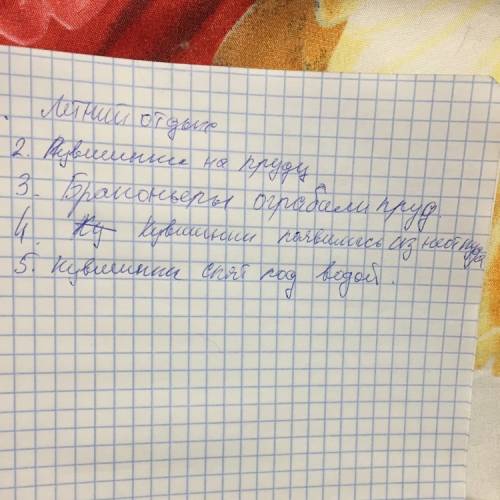 . Летний отдых
2. Кувшинки на пруду
3. Браконьеры ограбали пруд.
4. Ку Кувшинки появились из неоткуда
5. Кувшинки спят под водой.